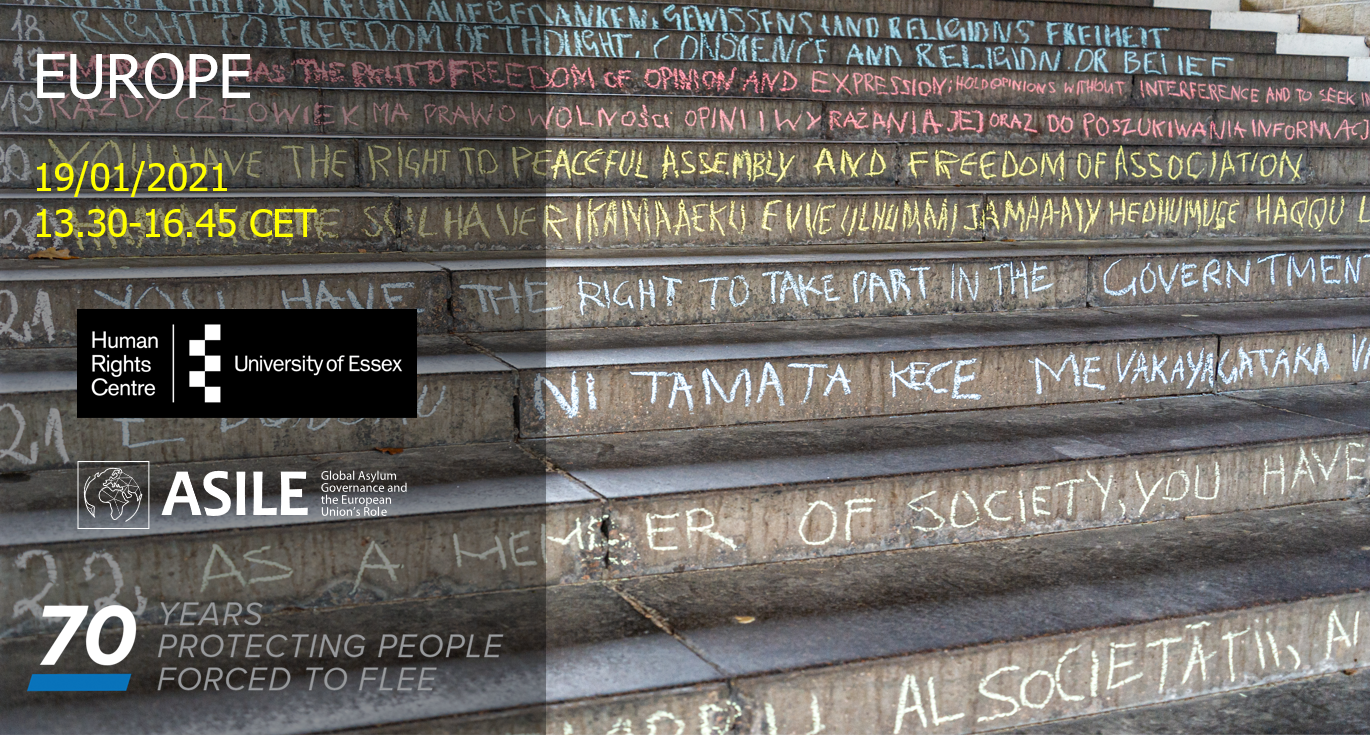 18 RIGHT TO FREEDOM OF THOUGHT, CONSCIENCE AND RELIGION OR BELIEF
THE RIGHT TO FREEDOM OF OPINION AND EXPRESSION; HOLD OPINIONS WITHOUT INTERFERENCE AND TO SEEK
19 KAŻDY CZŁOWIEK MA PRAWO WOLNOŚCI OPINII I WYRAŻANIA JEJ ORAZ DO POSZUKIWANIA INFORMACJ
YOU HAVE THE RIGHT TO PEACEFUL ASSEMBLY AND FREEDOM OF ASSOCIATION
HAQQU
21 YOU HAVE THE RIGHT TO TAKE PART IN THE GOVERNMENT
21 NI TAMATA KECE ME VAKAYAGATAKA
22, AS A MEMBER OF SOCIETY, YOU HAVE
AL SOCIETĂȚII,
EUROPE
19/01/2021
13.30-16.45 CET
Human
Rights
Centre
University of Essex
ASILE
Global Asylum
Governance and
the European
Union's Role
70 YEARS
PROTECTING PEOPLE
FORCED TO FLEE